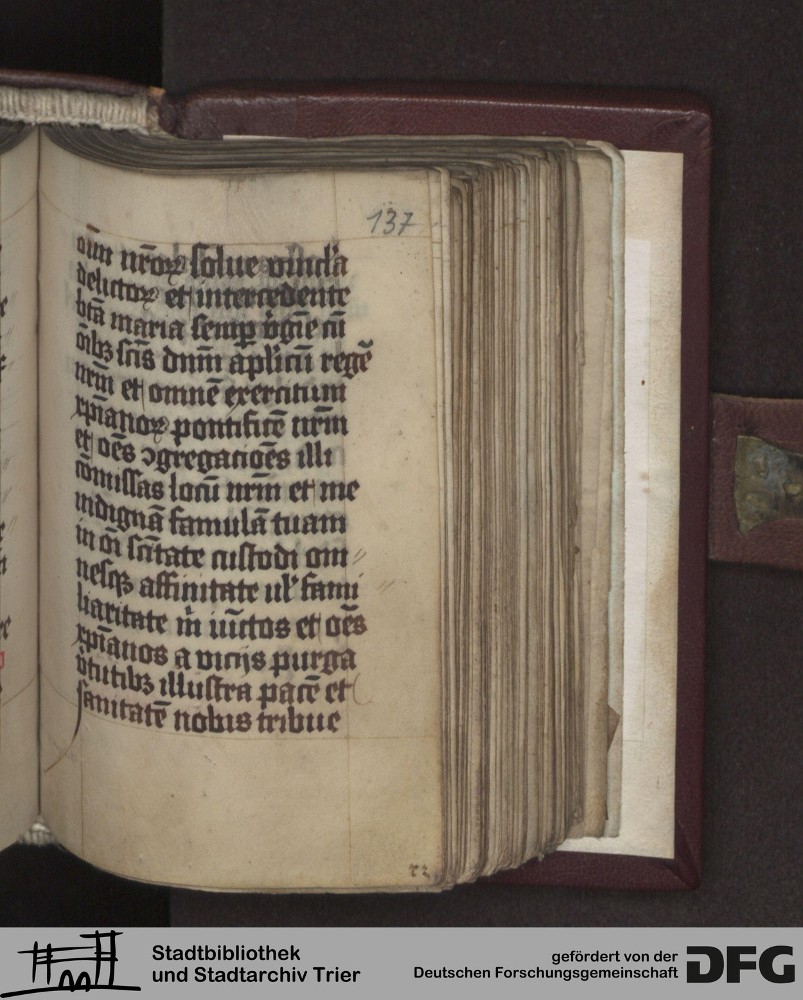 137
oīm nr̄oꝝ solue vincl'a
delictoꝝ et intercedente
btā maria semꝑ v̓gīe cū
oībꝫ sc̄is dnm̄ apl̄icū regē
nrm̄ et omnē exercitum
xp̄ianoꝝ pontificē nr̄m
et oēs ↄgregacioēs illi
cōmissas locū nrm̄ et me
indignā famulā tuam
in oī sc̄itate custodi om〃
nesqꝫ affinitate ul̓ fami〃
liaritate m̓ iūctos et oēs
xp̄ianos a vicijs purga
v̓tutibꝫ illustra pacē et
sanitatē nobis tribue
Stadtbibliothek
und Stadtarchiv Trier
gefördert von der
Deutschen Forschungsgemeinschaft
DFG